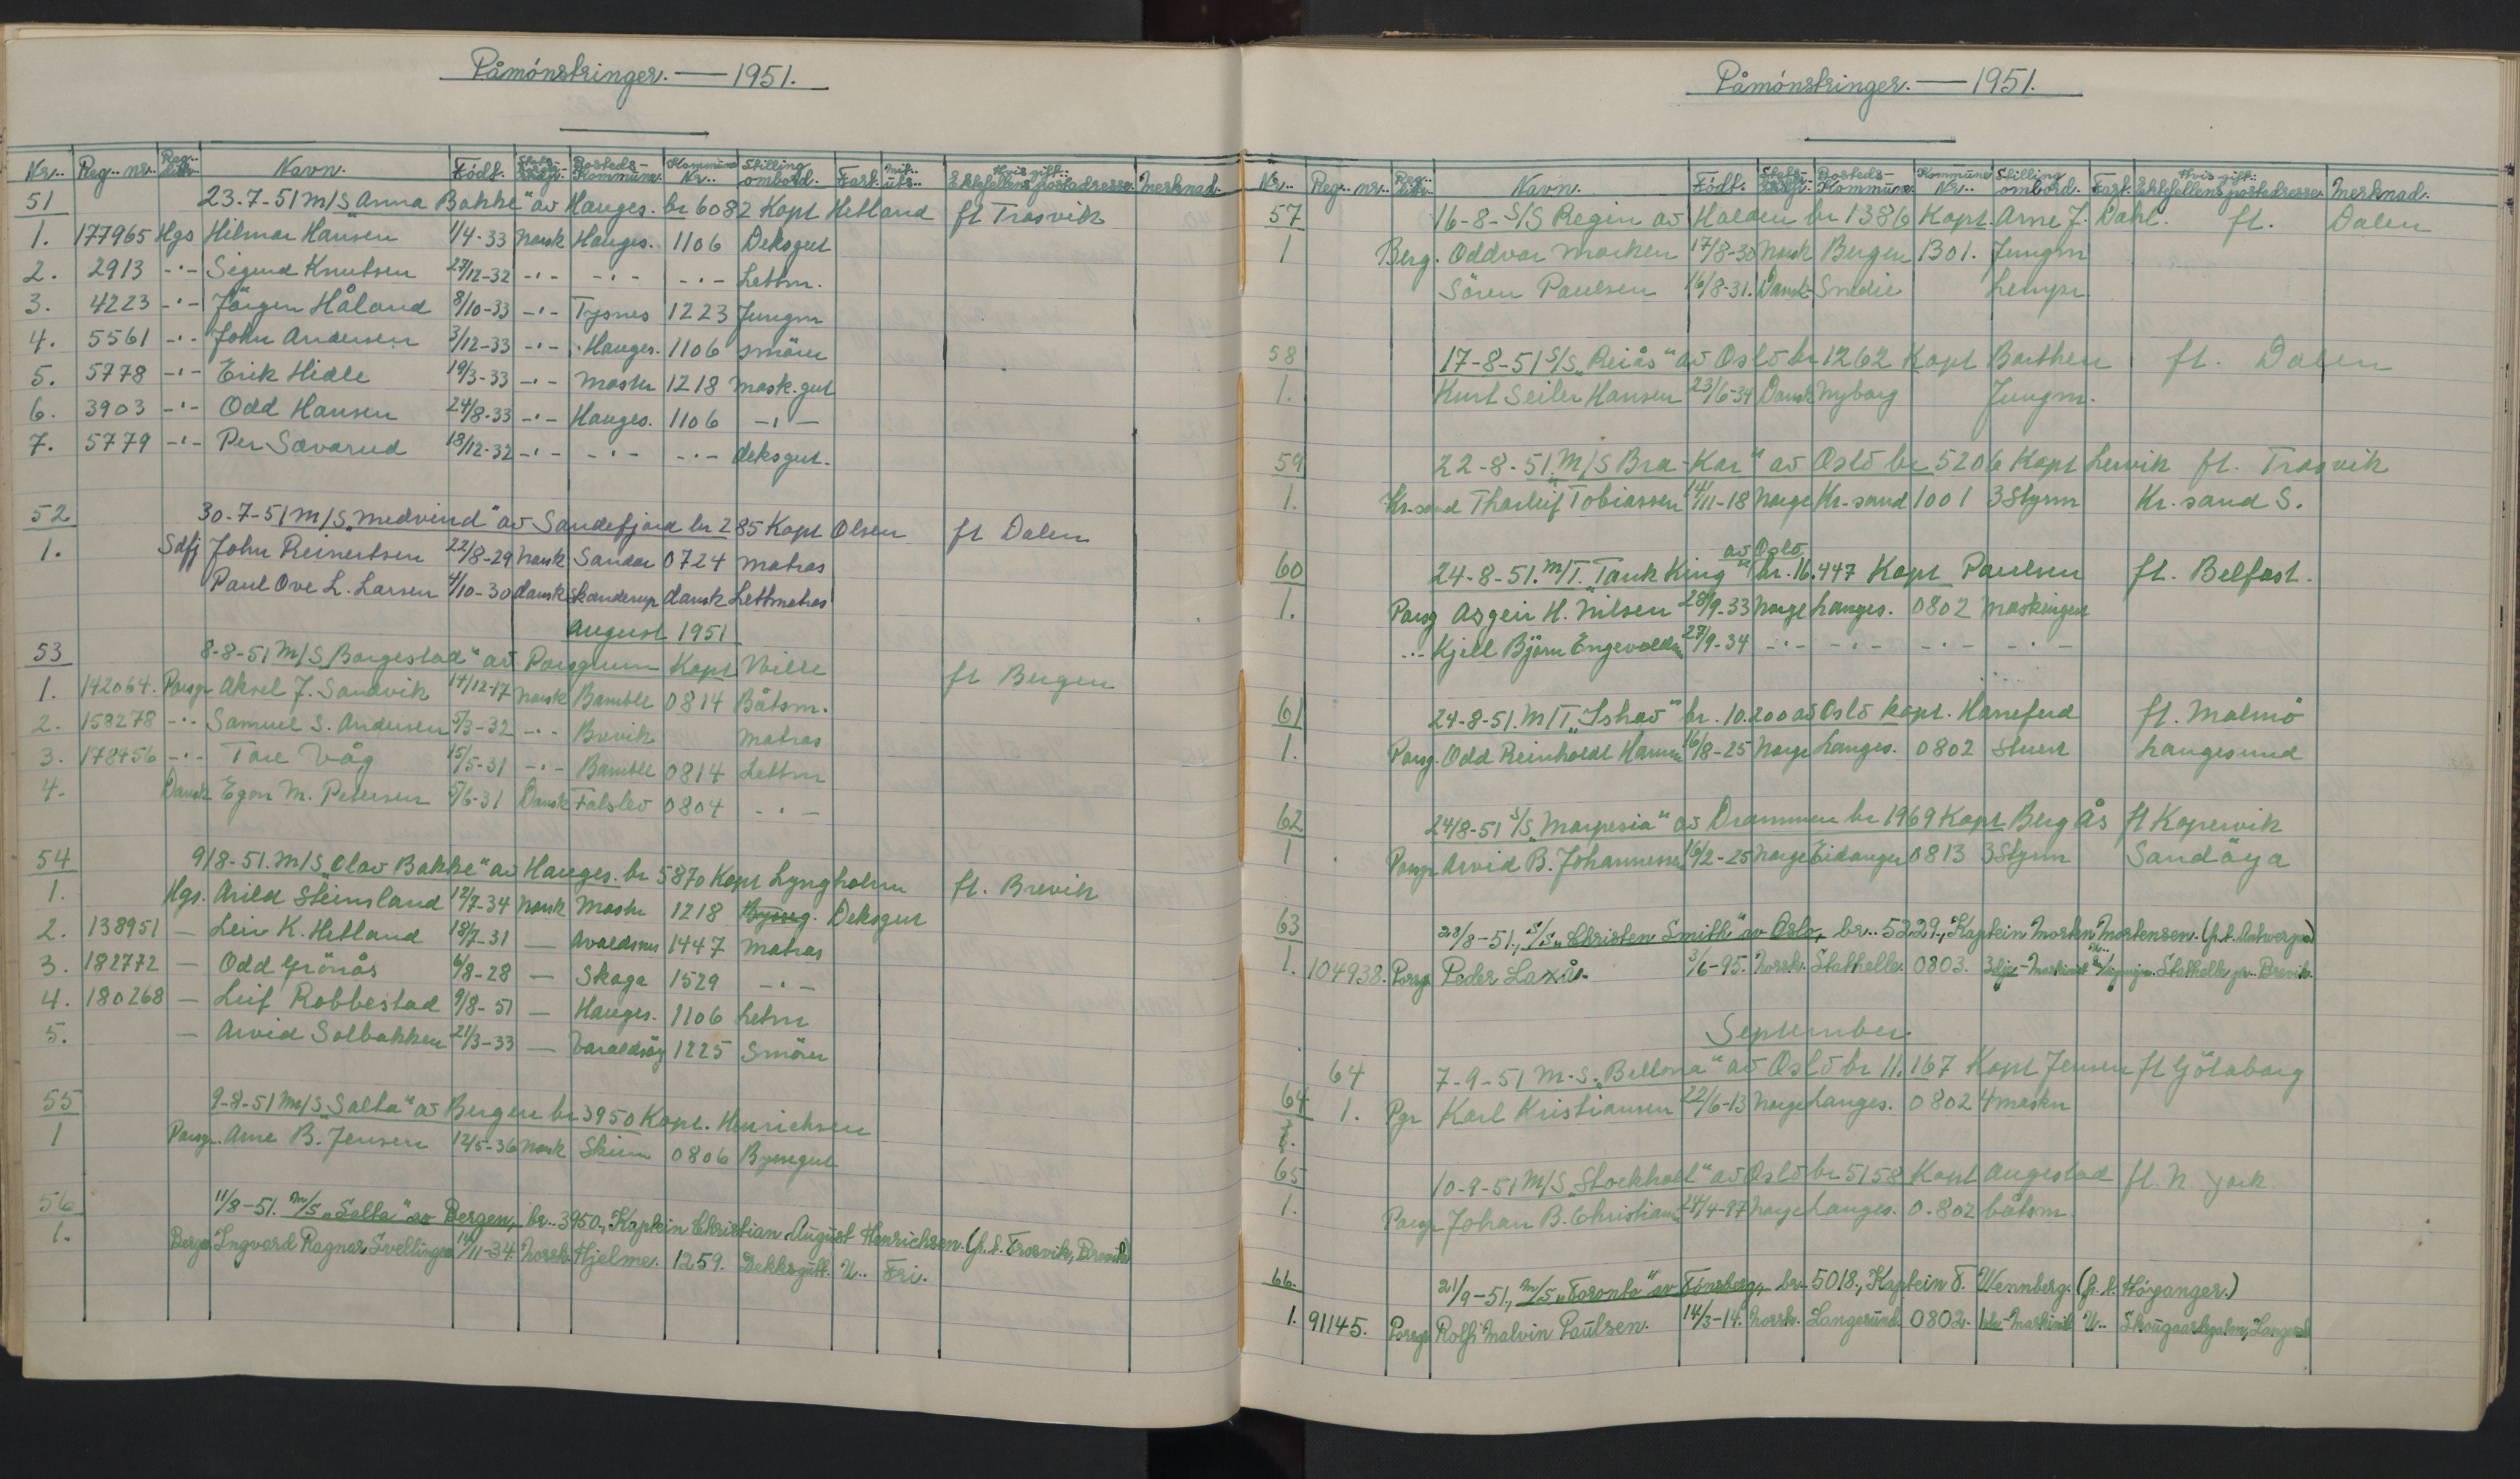 Påmönstringer. — 1951.
Nr. Reg. nr. Reg. distr. Navn. Födt. Stats- borgr. Bosteds- Kommune. Kommune Nr. Stilling ombord. Fart. Mil. uts. Hvis gift: Ektefellens postadresse. Merknad.
51 23-7-51 M/S Anna Bakke" av Hauges. br 6082 Kapt Hetland ft Trosvik
1. 177965 Hgs Hilmar Hansen 1/4-33 Norsk Hauges. 1106 Deksgut
2. 2913 -"- Sigurd Knutsen 27/12-32 -"- -"- -"- Lettm.
3. 4223 -"- Jörgen Håland 8/10-33 -"- Tysnes 1223 Jungm
4. 5561 -"- John Andersen 3/12-33 -"- Hauges. 1106 Smörer
5. 5778 -"- Erik Hidle 19/3-33 -"- Moster 1218 Mask.gut
6. 3903 -"- Odd Hansen 24/8-33 -"- Hauges. 1106 -"-
7. 5779 -"- Per Sævarud 18/12-32 -"- -"- -"- deksgut.
52 30-7-51 M/S „Medvind" av Sandefjord br 285 Kapt Olsen ft Dalen
1. Sdfj John Reinertsen 22/8-29 Norsk Sandar 0724 Matros
Paul Ove L. Larsen 4/10-30 dansk Skanderup dansk Lettmatros
August 1951
53 8-8-51 M/S „Borgestad" av Porsgrunn Kapt Wille ft Bergen
1. 142064. Porsgr Aksel J. Sandvik 14/12-17 Norsk Bamble 0814 Båtsm.
2. 158278 -"- Samuel S. Andersen 5/3-32 -"- Brevik Matros
3. 178456 -"- Tore Våg 15/5-31 -"- Bamble 0814 Lettm
4. Dansk Egon M. Petersen 5/6-31 Dansk Falslev 0804 -"-
54 9/8-51. M/S „Olav Bakke" av Hauges. br 5870 Kapt Lyngholm ft. Brevik
1. Hgs. Arild Steinsland 12/7-34 Norsk Moster 1218 Bysseg. Deksgut
2. 138951 — Leiv K. Hetland 18/7-31 — Avaldsnes 1447 Matros
3. 182772 — Odd Grönås 6/8-28 — Skoge 1529 -"-
4. 180268 — Leif Robbestad 9/8-51 — Hauges. 1106 Letm
5. — Arvid Solbakken 21/3-33 — Varaldsöy 1225 Smörer
55 9-8-51 M/S „Salta" av Bergen br 3950 Kapt. Henrichsen
1 Porsgr. Arne B. Jensen 12/5-36 Norsk Skien 0806 Byssegut
56 11/8-51. M/S „Salta" av Bergen, br. 3950, Kaptein Christian August Henrichsen. (p.t. Trosvik, Brevik)
1. Bergen Ingvard Ragnar Svellingen 14/11-34. Norsk. Hjelme. 1259. Dekksgutt. U.. Fri.
Påmönstringer. — 1951.
Nr. Reg. nr. Reg. distr. Navn. Födt. Stats- borgr. Bosteds- Kommune. Kommune Nr. Stilling ombord. Fart. Hvis gift: Ektefellens postadresse. Merknad.
57 16-8- S/S Regin av Halden br 1386 Kapt. Arne J. Dahl. ft. Dalen
1 Berg. Oddvar Morken 17/8-30 Norsk Bergen 1301. Jungm
Sören Paulsen 16/8-31. Dansk Snedie Lempr.
58 17-8-51 S/S „Reiås" av Oslo br 1262 Kapt Barthen ft. Dalen
1. Kurt Seiler Hansen 23/6-34 Dansk Nyborg Jungm.
59 22-8-51. M/S „Bra-Kar" av Oslo br 5206 Kapt Lervik ft. Trosvik
1. Kr.sand Thorleif Tobiassen 14/11-18 Norge Kr.sand 1001 3 Styrm Kr. sand S.
60 24-8-51. M/T. „Tank King" av Oslo br. 16.447 Kapt Paulsen ft. Belfast.
1. Porsg Asgeir H. Nilsen 28/9-33 Norge Langes. 0802 Maskingut
-"- Kjell Björn Engevoldsen 27/9-34 -"- -"- -"- -"-
61 24-8-51. M/T „Ishav" br. 10.200 av Oslo Kapt. Haneferd ft. Malmö
1. Porsg. Odd Reinholdt Hansen 16/8-25 Norge Langes. 0802 Stuert Langesund
62 24/8-51 S/S „Marpesia" av Drammen br 1969 Kapt Berg Ås ft Kopervik
1 Porsgr Arvid B. Johannessen 16/2-25 Norge Eidanger 0813 3 Styrm Sandöya
63 28/8-51., S/S „Christen Smith" av Oslo, br.. 5229., Kaptein Morten Mortensen. (p.t. Antwerpen)
1. 104938. Porsg Peder Laxå. 3/6-95. Norsk. Stathelle. 0803. 3dje-Maskinist Stathelle pr. Brevik.
September.
64 7-9-51 M.S. „Bellona" av Oslo br 11.167 Kapt Jensen ft Göteborg
64 1. Pgr Karl Kristiansen 22/6-13 Norge Langes. 0802 4 maskn
65 10-9-51 M/S „Stockholt" av Oslo br 5158 Kapt Augestad ft. N. York.
1. Porsgr Johan B. Christiansen 24/4-97 Norge Langes. 0.802 båtsm.
66. 21/9-51., M/S „Toronto" av Tönsberg, br. 5018., Kaptein T. Wennberg. (p.t. Höyanger.)
1. 91145. Porsgr Rolf Malvin Paulsen. 14/3-14. Norsk. Langesund. 0802. 1ste-Maskinist U..